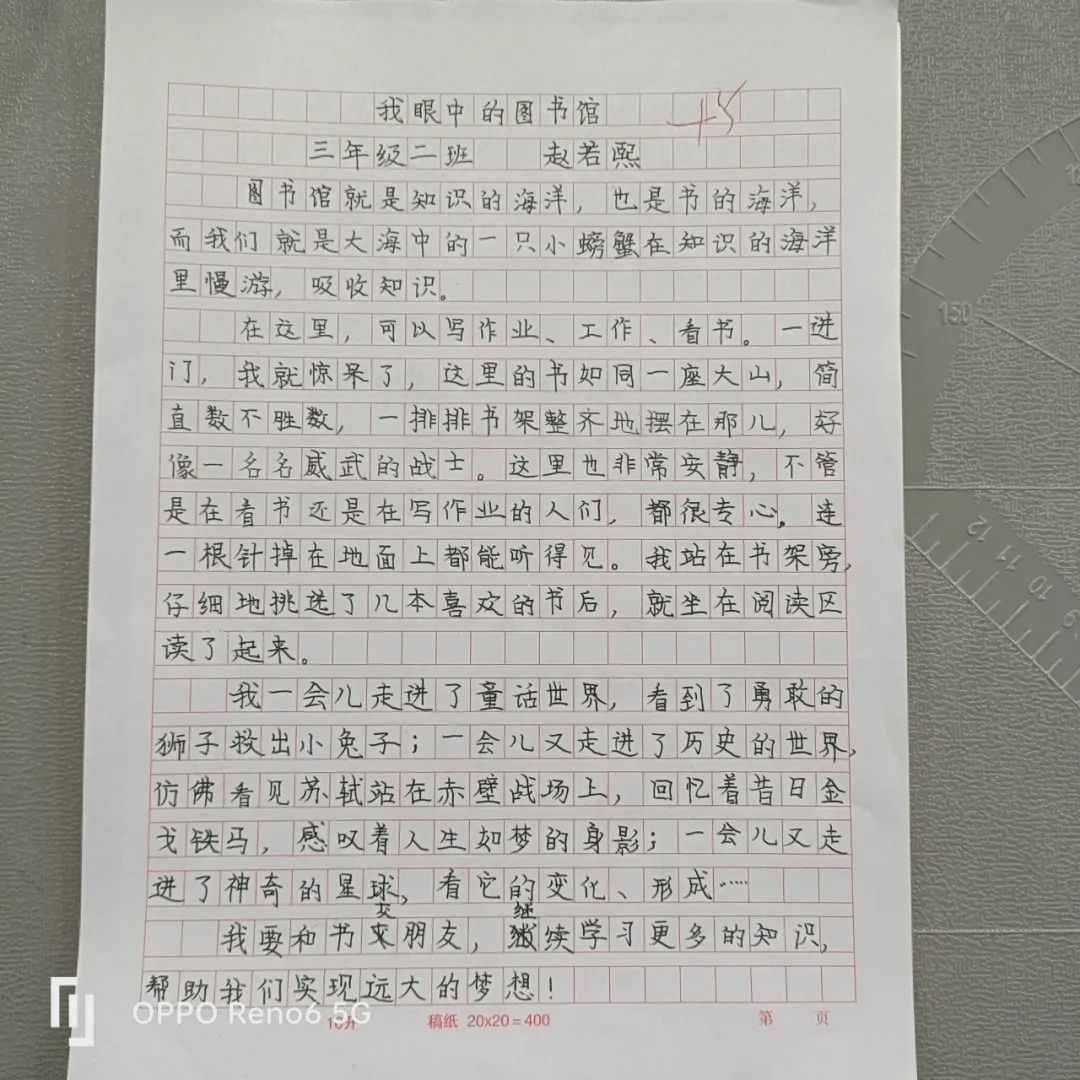 我眼中的图书馆 45
三年级二班 赵若熙
图书馆就是知识的海洋，也是书的海洋，
而我们就是大海中的一只小螃蟹在知识的海洋
里慢游，吸收知识。
在这里，可以写作业、工作、看书。一进
门，我就惊呆了，这里的书如同一座大山，简
直数不胜数，一排排书架整齐地摆在那儿，好
像一名名威武的战士。这里也非常安静，不管
是在看书还是在写作业的人们，都很专心，连
一根针掉在地面上都能听得见。我站在书架旁，
仔细地挑选了几本喜欢的书后，就坐在阅读区
读了起来。
我一会儿走进了童话世界，看到了勇敢的
狮子救出小兔子；一会儿又走进了历史的世界，
仿佛看见苏轼站在赤壁战场上，回忆着昔日金
戈铁马，感叹着人生如梦的身影；一会儿又走
进了神奇的星球，看它的变化、形成……
交 继
我要和书朋友，续学习更多的知识，
帮助我们实现远大的梦想！
OPPO Reno6 5G
16开 稿纸 20x20=400 第 页
150
12
11
10
9